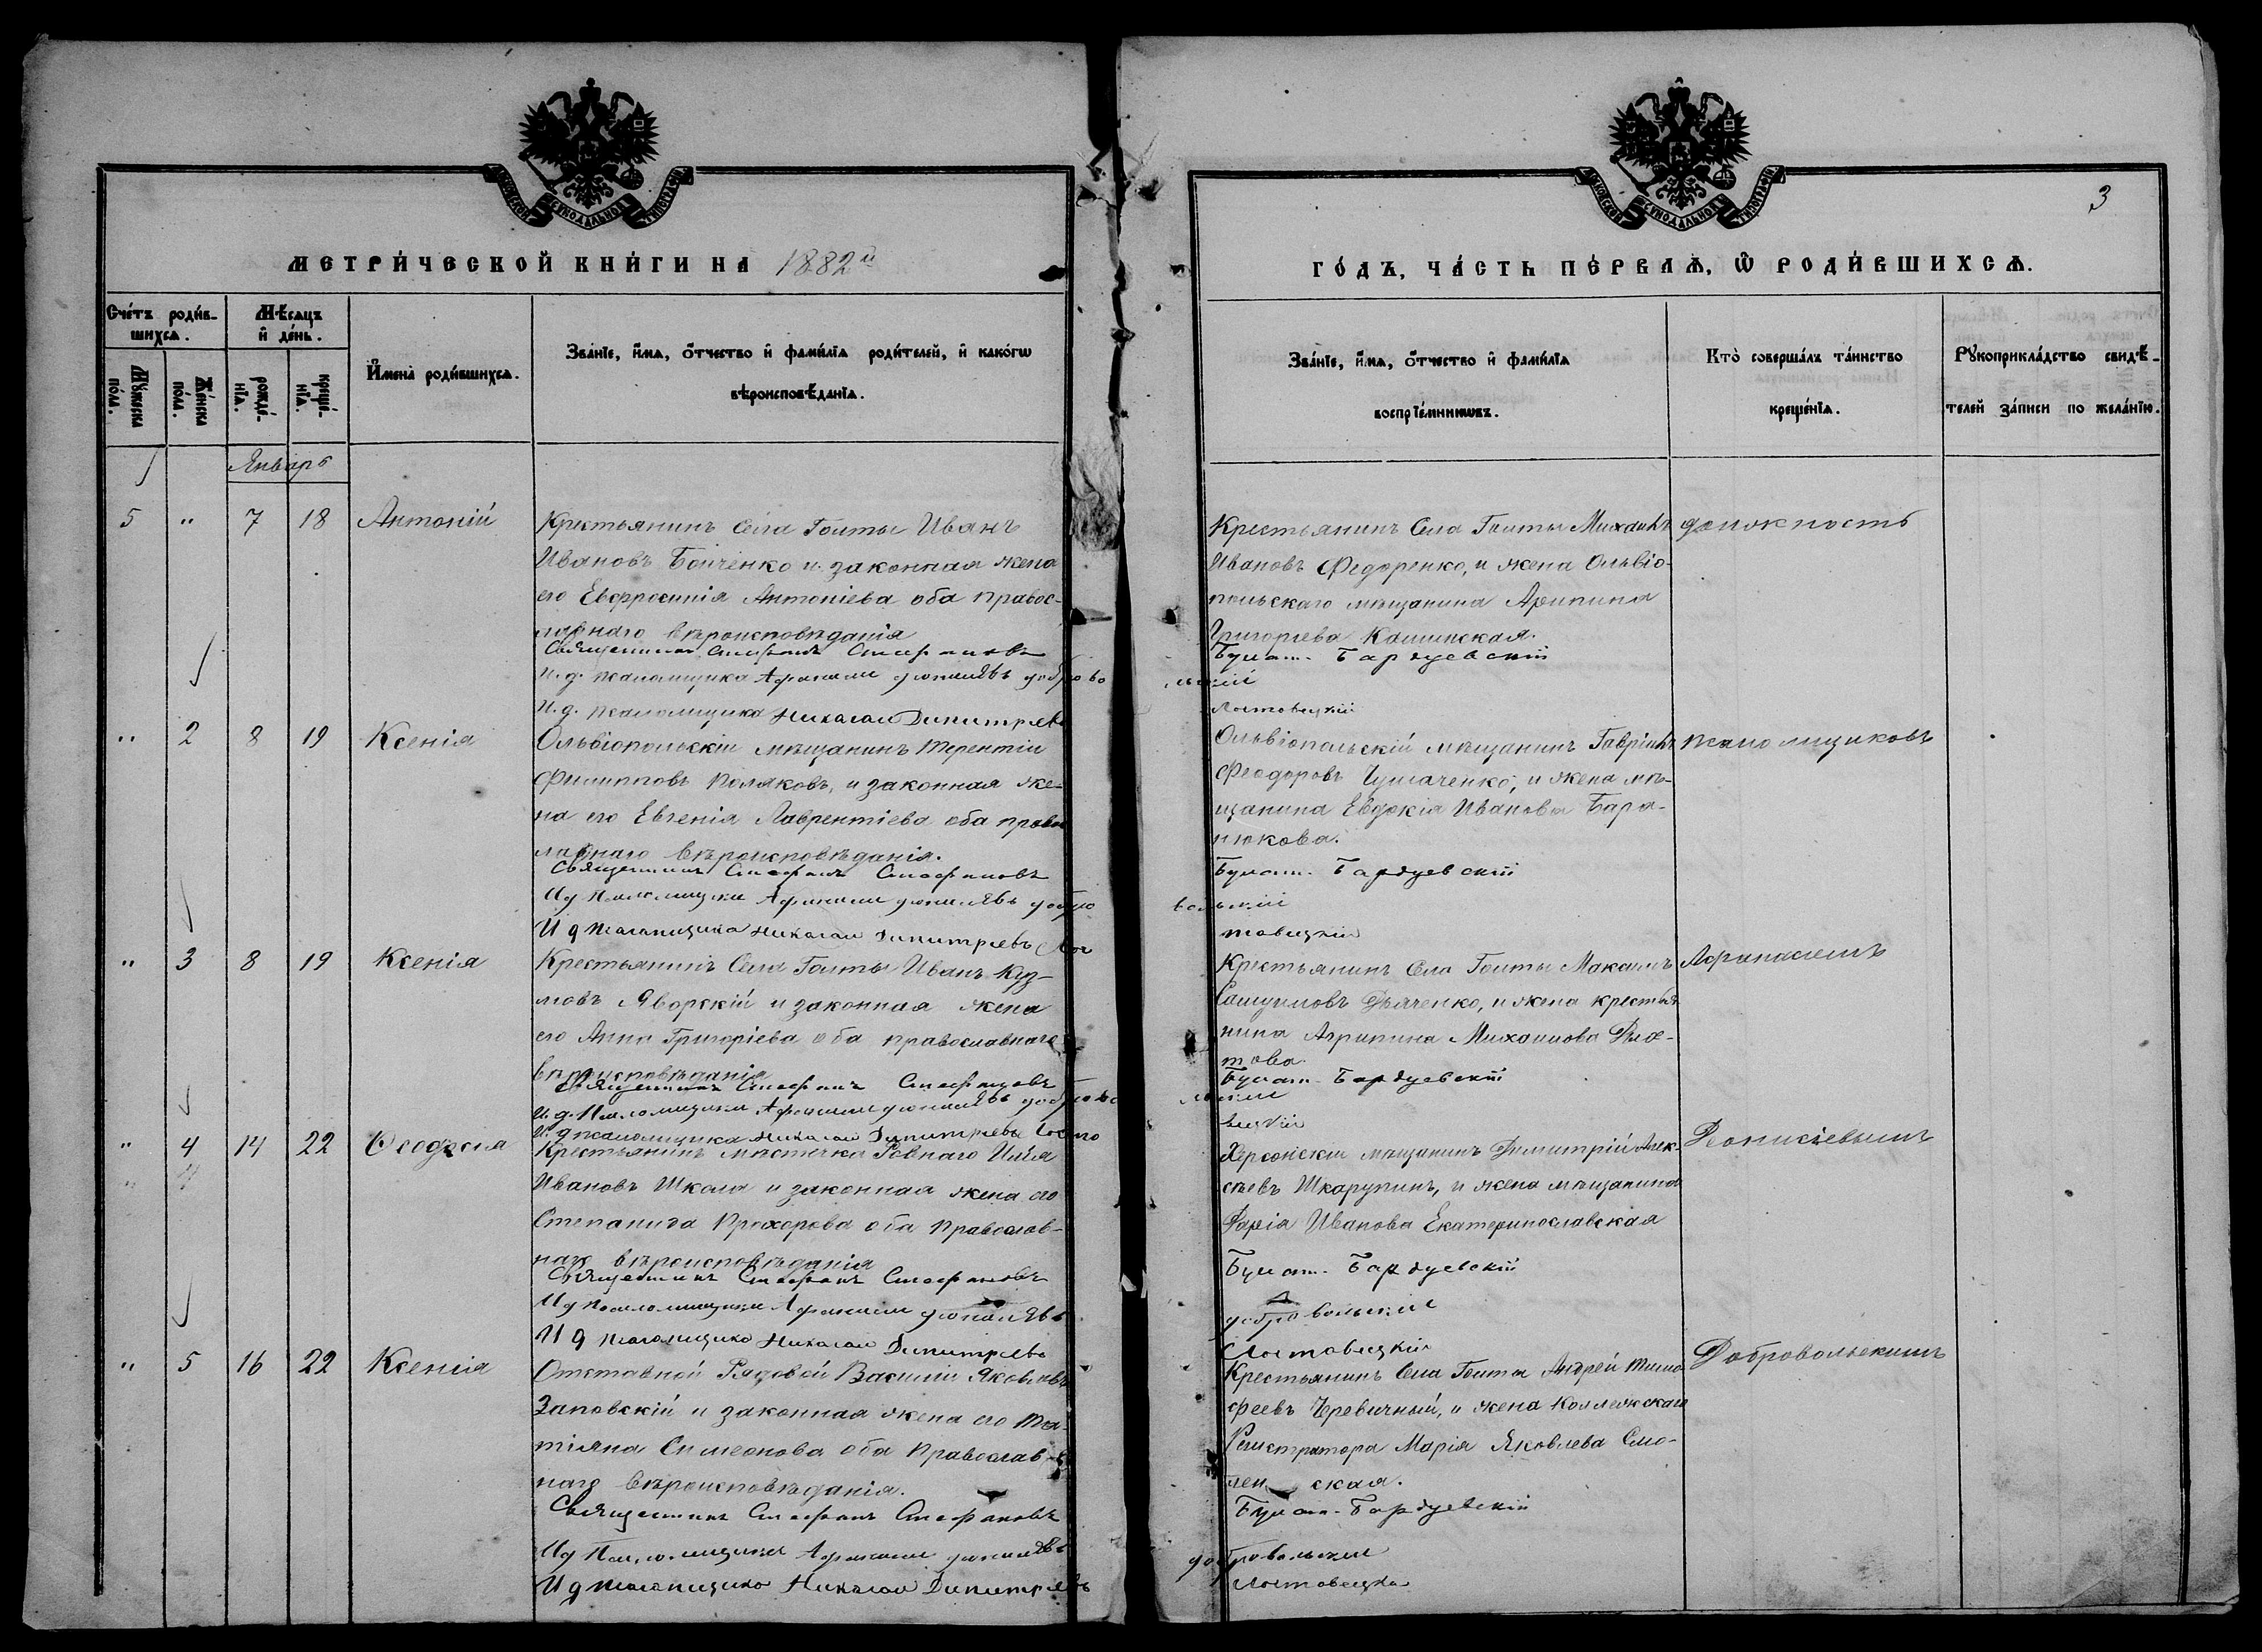 МЕТРИ́ЧЕСКОЙ КНИ́ГИ НА 1882й
ГО́ДЪ, ЧА́СТЬ ПЕ́РВАѦ, Ѽ РОДИ́ВШИХСѦ.
3
Сче́тъ роди́в-
шихсѧ.
Мѣ́сѧцъ
и҆ де́нь.
Мꙋ́жеска по́ла.
Же́нска по́ла.
рожде́-нїѧ.
креще́-нїѧ.
И҆мена̀ роди́вшихсѧ.
Зва́нїе, и҆́мѧ, ѻ҆́тчество и҆ фами́лїѧ роди́телей, и҆ како́гѡ
вѣроисповѣ́данїѧ.
Зва́нїе, и҆́мѧ, ѻ҆́тчество и҆ фами́лїѧ
воспрїе́мникѡвъ.
Кто̀ соверша́лъ та́инство
креще́нїѧ.
Рꙋкоприкла́дство свидѣ́-
телей за́писи по жела́нїю.
Январь
5 " 7 18 Антоній
Крестьянинъ Села Голты Иванъ
Ивановъ Бойченко и законная жена
его Евфросинія Антоніева оба правос-
лавнаго вѣроисповѣданія
Священникъ Стефанъ Стефановъ
И. д. псаломщика Афанасій Діонисіевъ Доброво
И. д. псаломщика Николай Димитріевъ
Крестьянинъ Села Голты Михаилъ
Ивановъ Федоренко, и жена Ольвіо-
польскаго мѣщанина Агрипина
Григорьева Каминская.
Булат. Бардуевскій
льскій
Лостовецкій
должность
" 2 8 19 Ксенія
Ольвіопольскій мѣщанинъ Терентій
Филипповъ Поляковъ, и законная же-
на его Евгенія Лаврентіева оба правос
лавнаго вѣроисповѣданія.
Священникъ Стефанъ Стефановъ
И д Псаломщика Афанасій Діонисіевъ Добро
И д псаломщика Николай Димитріевъ Лос
Ольвіопольскій мѣщанинъ Гавріилъ
Феодоровъ Чумаченко, и жена мѣ-
щанина Евдокія Иванова Бара-
нюкова.
Булат. Бардуевскій
вольскій
товецкій
псаломщиковъ
" 3 8 19 Ксенія
Крестьянинъ Села Голты Иванъ Куз-
мовъ Яворскій и законная жена
его Анна Григоріева оба православнаго
вѣроисповѣданія
Священникъ Стефанъ Стефановъ
И. д. Псаломщика Афанасій Діонисіевъ Доброво
И. д псаломщика Николай Димитріевъ Лосто
Крестьянинъ Села Голты Максимъ
Дьяченко, и жена крестья
нина Агрипина Михаилова
това.
Булат. Бардуевскій
льскій
вецкій
Афанасіемъ
" 4 14 22 Ѳеодосія
Крестьянинъ мѣстечка Ровнаго Илія
Ивановъ Школа и законная жена его
Степанида Прохорова оба православ-
наго вѣроисповѣданія
Священникъ Стефанъ Стефановъ
И д Псаломщика Афанасій Діонисіевъ
И д псаломщика Николай Димитріевъ
Херсонскій мѣщанинъ Димитрій Алек-
сѣевъ Шкарупинъ, и жена мѣщанина
Дарія Иванова Екатеринославская
Булат. Бардуевскій
Добровольскій
Лостовецкій
Діонисіевымъ
" 5 16 22 Ксенія
Отставной Рядовой Василій Яковлевъ
Заповскій и законная жена его Та-
тіяна Симеонова оба Православ-
наго вѣроисповѣданія.
Священникъ Стефанъ Стефановъ
И д Псаломщика Афанасій Діонисіевъ
И д псаломщика Николай Димитріевъ
Крестьянинъ Села Голты Андрей Тимо
феевъ Черевичный, и жена Коллежскаго
Регистратора Марія Яковлева Смо-
ленская.
Булат. Бардуевскій
Добровольскій
Лостовецкій
Добровольскимъ